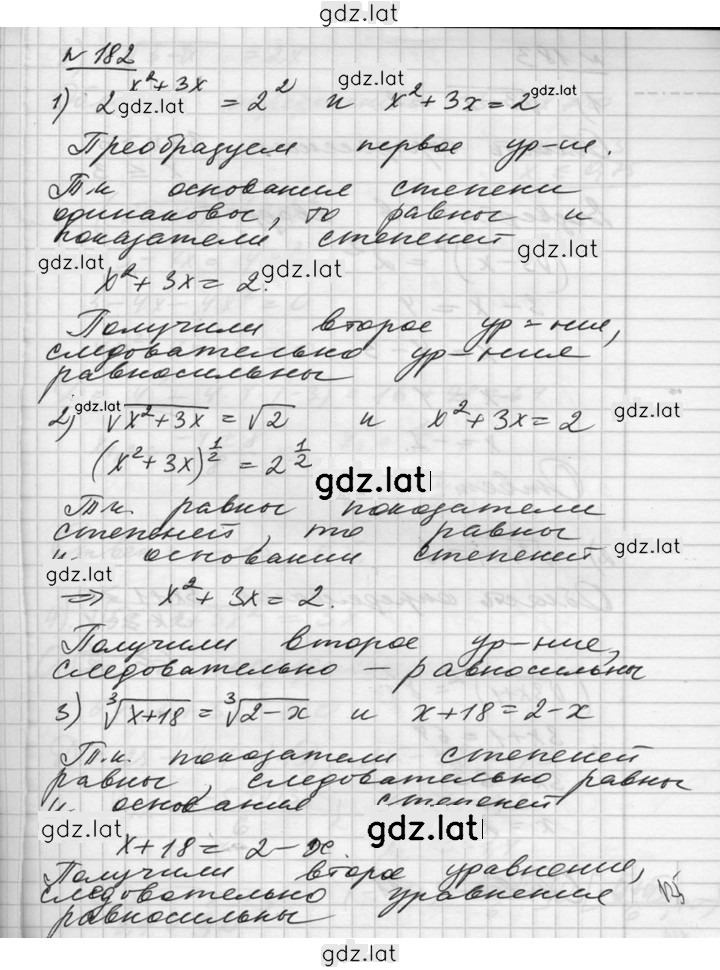 gdz.lat
№ 182
1) 2^(x²+3x) = 2² и x²+3x=2
gdz.lat gdz.lat gdz.lat
Преобразуем первое ур-ие.
Т.к основания степени
одинаковы, то равны и
показатели степеней
gdz.lat gdz.lat gdz.lat
x²+3x=2.
Получили второе ур-ние,
следовательно ур-ния
равносильны
gdz.lat
2) √(x²+3x) = √2 и x²+3x=2
gdz.lat
(x²+3x)^(1/2) = 2^(1/2)
gdz.lat
Т.к. равны показатели
степеней, то равны
и основании степеней
gdz.lat
gdz.lat
⇒ x²+3x=2.
Получили второе ур-ние,
следовательно – равносильны
3) ∛(x+18) = ∛(2-x) и x+18=2-x
Т.к. показатели степеней
равны, следовательно равны
и основания степеней
gdz.lat gdz.lat gdz.lat
x+18=2-x.
Получили второе уравнение,
следовательно уравнения
равносильны
gdz.lat